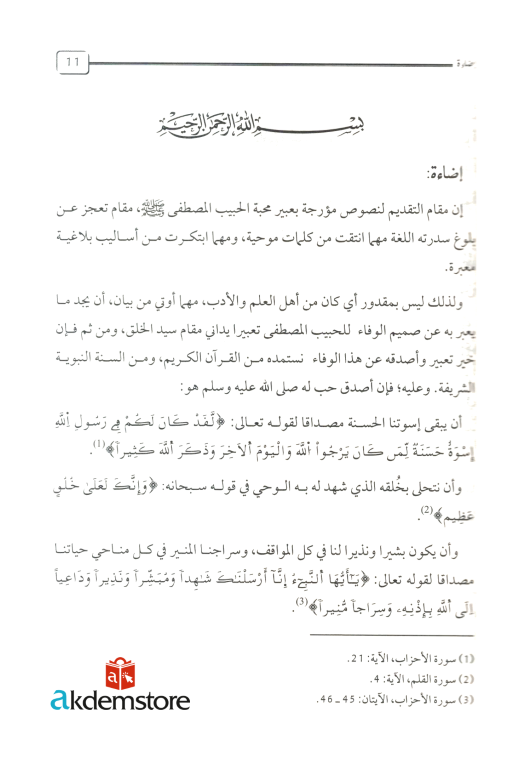 إضاءة
11
بسم الله الرحمن الرحيم
إضاءة:
إن مقام التقديم لنصوص مؤرجة بعبير محبة الحبيب المصطفى ﷺ، مقام تعجز عن
بلوغ سدرته اللغة مهما انتقت من كلمات موحية، ومهما ابتكرت من أساليب بلاغية
معبرة.
ولذلك ليس بمقدور أي كان من أهل العلم والأدب، مهما أوتي من بيان، أن يجد ما
يعبر به عن صميم الوفاء للحبيب المصطفى تعبيرا يداني مقام سيد الخلق، ومن ثم فإن
خير تعبير وأصدقه عن هذا الوفاء نستمده من القرآن الكريم، ومن السنة النبوية
الشريفة. وعليه؛ فإن أصدق حب له صلى الله عليه وسلم هو:
أن يبقى إسوتنا الحسنة مصداقا لقوله تعالى: ﴿لَّقَدْ كَانَ لَكُمْ فِي رَسُولِ اللَّهِ
إِسْوَةٌ حَسَنَةٌ لِّمَن كَانَ يَرْجُواْ اللَّهَ وَالْيَوْمَ الَاخِرَ وَذَكَرَ اللَّهَ كَثِيراً﴾(1).
وأن نتحلى بخُلقه الذي شهد له به الوحي في قوله سبحانه: ﴿وَإِنَّكَ لَعَلَىٰ خُلُقٍ
عَظِيمٍ﴾(2).
وأن يكون بشيرا ونذيرا لنا في كل المواقف، وسراجنا المنير في كل مناحي حياتنا
مصداقا لقوله تعالى: ﴿يَٰٓأَيُّهَا النَّبِيٓءُ انَّآ أَرْسَلْنَٰكَ شَٰهِداً وَمُبَشِّراً وَنَذِيراً وَدَاعِياً
اِلَى اللَّهِ بِإِذْنِهِۦ وَسِرَاجاً مُّنِيراً﴾(3).
(1) سورة الأحزاب، الآية: 21.
(2) سورة القلم، الآية: 4.
(3) سورة الأحزاب، الآيتان: 45 ـ 46.
a
akdemstore